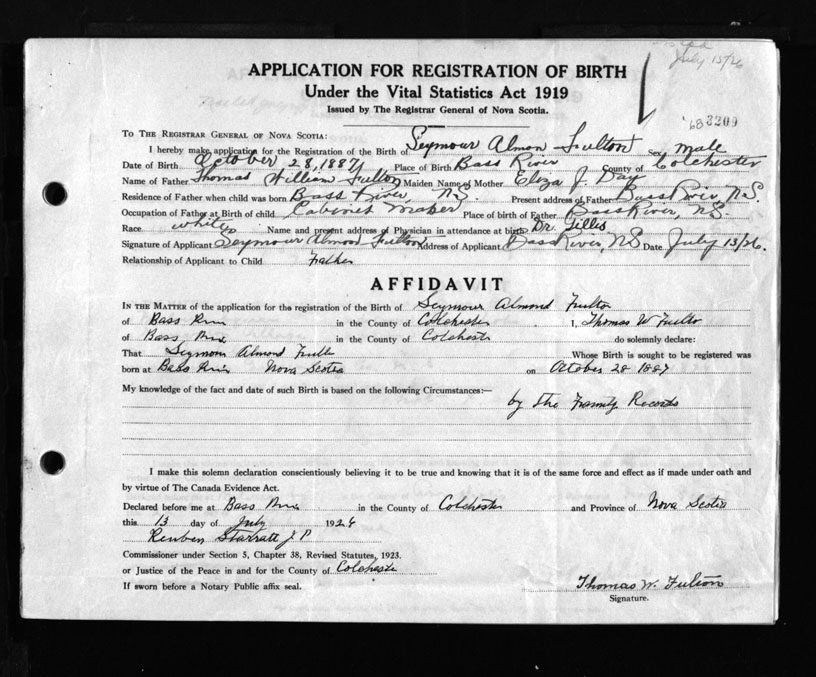 July 13/26
APPLICATION FOR REGISTRATION OF BIRTH
Under the Vital Statistics Act 1919
Issued by The Registrar General of Nova Scotia.
'68 3209
TO THE REGISTRAR GENERAL OF NOVA SCOTIA:
I hereby make application for the Registration of the Birth of Seymour Almon Fulton Sex Male
Date of Birth October 28, 1887 Place of Birth Bass River County of Colchester
Name of Father Thomas William Fulton Maiden Name of Mother Eliza J. Day
Residence of Father when child was born Bass River, N.S. Present address of Father Bass River, N.S.
Occupation of Father at Birth of child Cabinet Maker Place of birth of Father Bass River, N.S.
Race white Name and present address of Physician in attendance at birth Dr. Gillis
Signature of Applicant Seymour Almond Fulton Address of Applicant Bass River, N.S Date July 13/26.
Relationship of Applicant to Child Father
AFFIDAVIT
IN THE MATTER of the application for the registration of the Birth of Seymour Almond Fulton
of Bass River in the County of Colchester I, Thomas W Fulton
of Bass River in the County of Colchester do solemnly declare:
That Seymour Almond Fulton Whose Birth is sought to be registered was
born at Bass River Nova Scotia on October 28 1887
My knowledge of the fact and date of such Birth is based on the following Circumstances:—
by the Family Records
I make this solemn declaration conscientiously believing it to be true and knowing that it is of the same force and effect as if made under oath and
by virtue of The Canada Evidence Act.
Declared before me at Bass River in the County of Colchester and Province of Nova Scotia
this 13 day of July 1926
Reuben Starratt J P
Commissioner under Section 5, Chapter 38, Revised Statutes, 1923.
or Justice of the Peace in and for the County of Colchester
If sworn before a Notary Public affix seal.
Thomas W. Fulton
Signature.